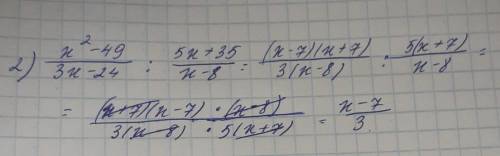 2) (x²-49)/(3x-24) : (5x+35)/(x-8) = ((x-7)(x+7))/(3(x-8)) : (5(x+7))/(x-8) =
= ((x+7)(x-7)·(x-8))/(3(x-8)·5(x+7)) = (x-7)/3